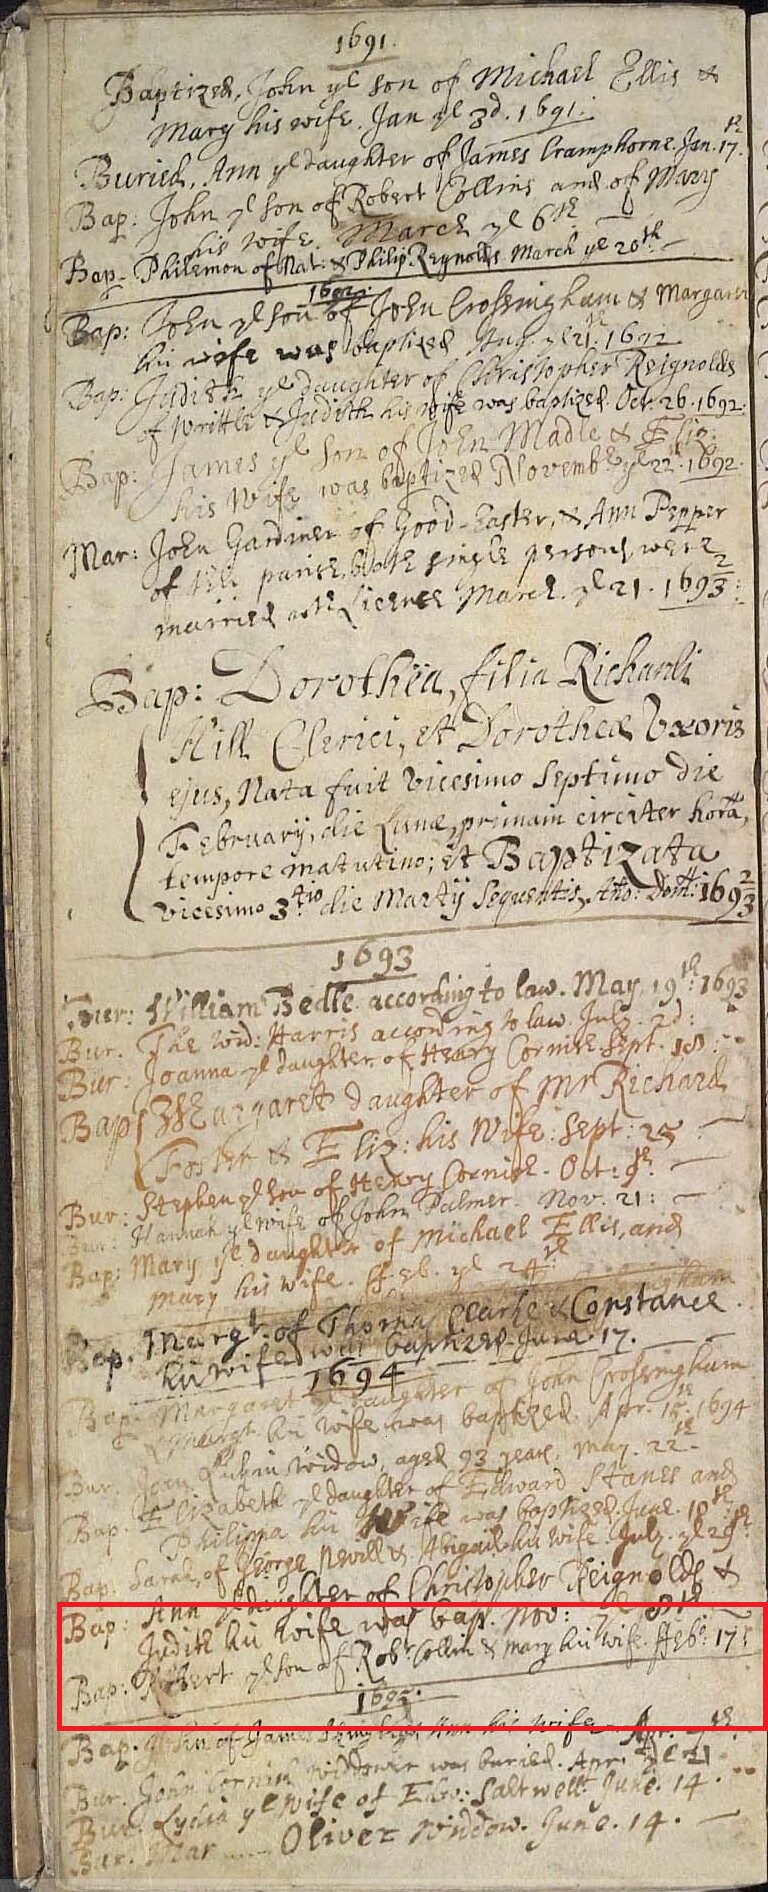 1691.
Baptized, John ye son of Michael Ellis &
Mary his wife. Jan ye 3d. 1691.
Buried, Ann ye daughter of James Cramphorne. Jan. 17th
Bap: John ye son of Robert Collins and of Mary
his wife. March ye 6th
Bap. Philemon of Nat: & Philip Reynolds March ye 20th
1692.
Bap: John ye son of John Crossingham & Margaret
his wife was baptized Aug. ye 21. 1692
Bap: Judith ye daughter of Christopher Reignolds
of Writtle & Judith his wife was baptized. Oct. 26. 1692.
Bap: James ye son of John Madle & Eliz:
his Wife was baptized Novemb. ye 22. 1692.
Mar: John Gardiner of Good-Easter, & Ann Pepper
of this parish both single persons, were
married with Licence March. ye 21. 1692/3:
Bap: Dorothea, filia Richardi
Hill Clerici, et Dorotheæ Uxoris
ejus, Nata fuit Vicesimo Septimo die
Februarij, die Lunæ, primam circiter horã,
tempore matutino; et Baptizata
vicesimo 3tio die Martij Sequentis, Ano: Dom: 1692/3
1693
Bur: William Bedle according to law. May. 19th 1693
Bur. The Wid: Harris according to law. July. 2d:
Bur: Joanna ye daughter of Henry Cornish. Sept. 18:
Bap: Margaret daughter of Mr Richard
Foster & Eliz: his Wife: Sept: 25
Bur: Stephen ye son of Henry Cornish. Oct: 9th.
Bur: Hannah ye wife of John Palmer. Nov. 21:
Bap: Mary ye daughter of Michael Ellis, and
Mary his wife. ffeb. ye 24th
Bap. Margt. of Thoma Clarke & Constance
his wife was baptized June. 17.
1694
Bap. Margaret ye daughter of John Crossingham
& Margt. his wife was baptized. Apr. 15th. 1694
Bur. Joan Widow, aged 93 years. May. 22th
Bap. Elizabeth ye daughter of Edward Stanes and
Philippa his Wife was baptized. June. 10th.
Bap. Sarah, of George Nevill & Abigail his wife. July. ye 29th.
Bap: Ann ye daughter of Christopher Reignolds &
Judith his wife was bap. Nov: ye 8th
Bap: Robert ye son of Robt Collin & Mary his wife. ffeb: 17:
1695.
Bap. John of James & Ann his wife. Apr.
Bur. John Cornish Widdower was buried. Apr. ye 21
Bur. Lydia ye Wife of Edw: Saltwell. June. 14.
Bur. Oliver Widdow. June. 14.